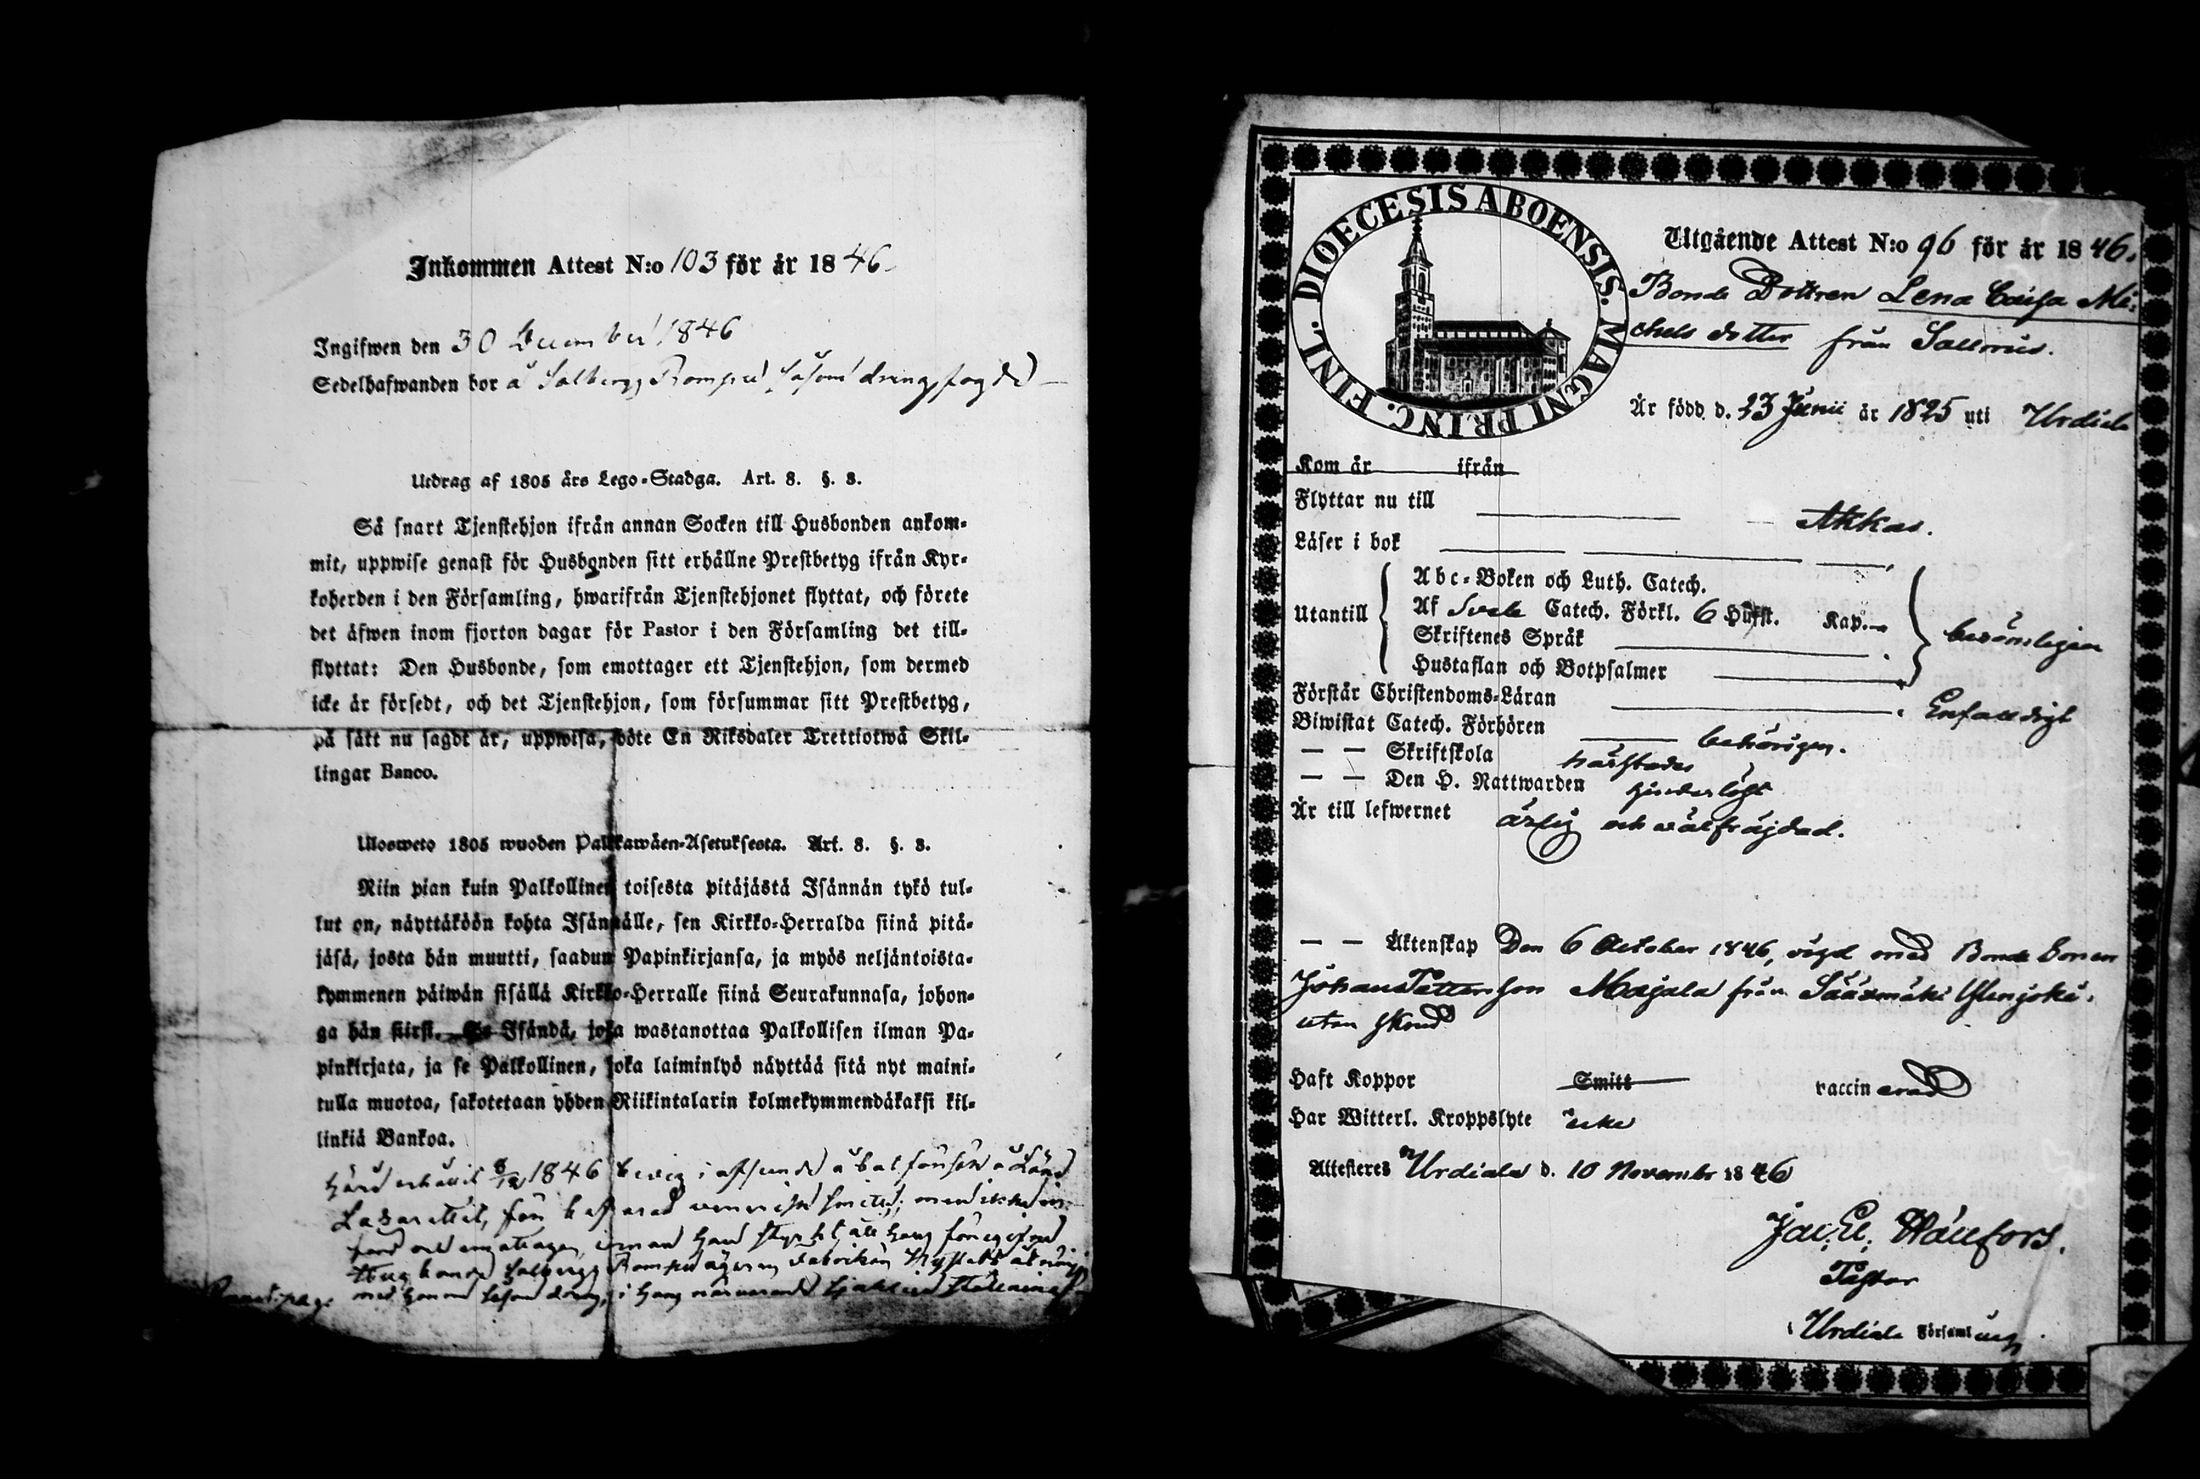 Inkommen Attest N:o 103 för år 1846
Ingifwen den 30 December 1846
Sedelhafwanden bor å såsom drengfogde
Utdrag af 1805 års Lego-Stadga. Art. 8. §. 8.
Så snart Tjenstehjon ifrån annan Socken till Husbonden ankom-
mit, uppwise genast för Husbonden sitt erhållne Prestbetyg ifrån Kyr-
koherden i den Församling, hwarifrån Tjenstehjonet flyttat, och förete
det äfwen inom fjorton dagar för Pastor i den Församling det till-
flyttat: Den Husbonde, som emottager ett Tjenstehjon, som dermed
icke är försedt, och det Tjenstehjon, som försummar sitt Prestbetyg,
på sätt nu sagdt är, uppwisa, böte En Riksdaler Trettiotwå Skil-
lingar Banco.
Ulosweto 1805 wuoden Palkkawäen-Asetuksesta. Art. 8. §. 8.
Niin pian kuin Palkollinen toisesta pitäjästä Isännän tykö tul-
lut on, näyttäköön kohta Isännälle, sen Kirkko-Herralda siinä pitä-
jäsä, josta hän muutti, saadun Papinkirjansa, ja myös neljäntoista-
kymmenen päiwän sisällä Kirkko-Herralle siinä Seurakunnasa, johon-
ga hän siirsi. Se Isändä, joka wastanottaa Palkollisen ilman Pa-
pinkirjata, ja se Palkollinen, joka laiminlyö näyttää sitä nyt maini-
tulla muotoa, sakotetaan yhden Riikintalarin kolmekymmendäkaksi kil-
linkiä Bankoa.
1846
Lazarettet, för
DIOECESIS ABOENSIS. MAGNI PRINC. FINL.
Utgående Attest N:o 96 för år 1846.
Bonde Dottren Lena Caisa Mi-
chels dotter från
År född d. 23 Junii år 1825 uti Urdiala
Kom år ifrån
Flyttar nu till Akkas.
Läser i bok
Utantill
Abc-Boken och Luth. Catech.
Af Svebe Catech. Förkl. 6 Hufst. Kap.
Skriftenes Språk
Hustaflan och Botpsalmer
berömligen
Förstår Christendoms-Läran Enfaldigt
Biwistat Catech. Förhören behörigen.
— — Skriftskola härstädes
— — Den H. Nattwarden hinderlöst
År till lefwernet ärlig och välfrägdad.
— — Äktenskap Den 6 October 1846, vigd med Bonde Sonen
Johan Petterson Majala från Sääxmäki
utan
Haft Koppor Smitt vaccinerad
Har Witterl. Kroppslyte icke
Attesteres Urdiala d. 10 November 1846
Jac. El. Wallfors.
Pastor
i Urdiala Församling.